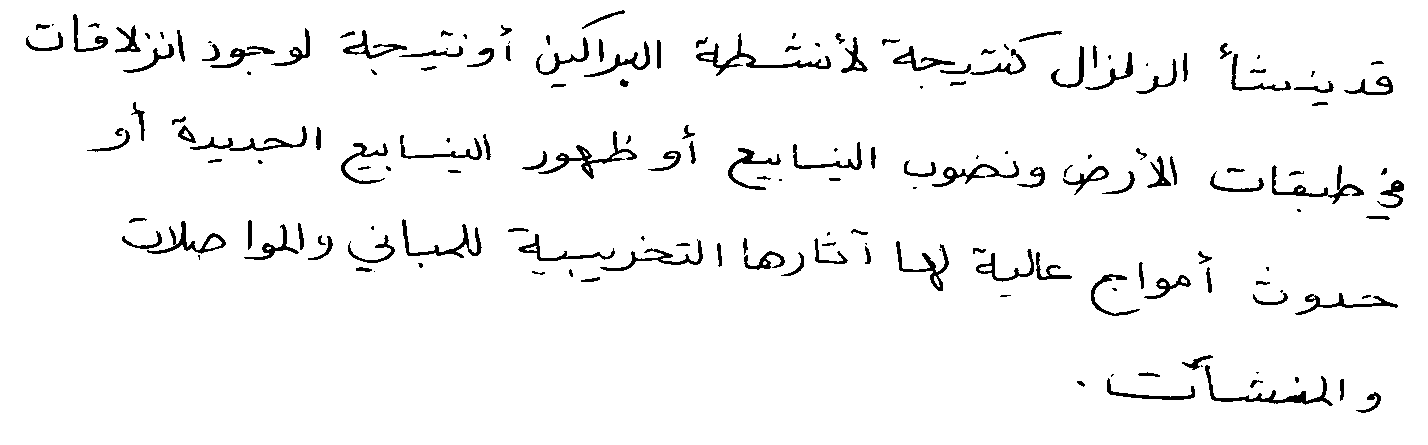 قد ينشأ الزلزال كنتيجة لأنشطة البراكين أو نتيجة لوجود انزلاقات
في طبقات الأرض ونضوب الينابيع أو ظهور الينابيع الجديدة أو
حدوث أمواج عالية لها آثارها التخريبية للمباني والمواصلات
والمنشآت .